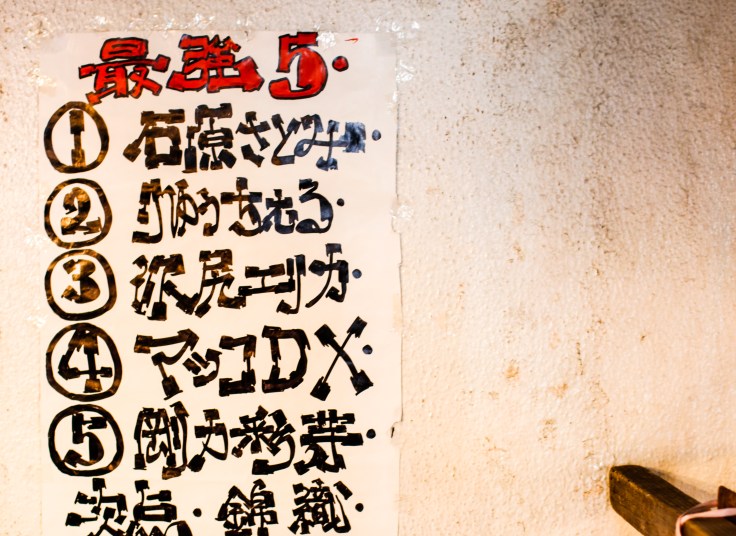 最強5.
①石原さとみ.
②りゅうちぇる.
③沢尻エリカ.
④マツコDX.
⑤剛力彩芽.
次点.錦織.